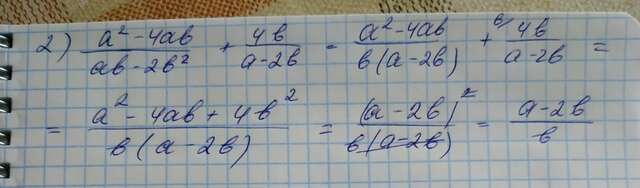 2) (a² - 4ab)/(ab - 2b²) + 4b/(a - 2b) = (a² - 4ab)/(b(a - 2b)) + ᵇ⁄ 4b/(a - 2b) =
= (a² - 4ab + 4b²)/(b(a - 2b)) = (a - 2b)²/(b(a - 2b)) = (a - 2b)/b